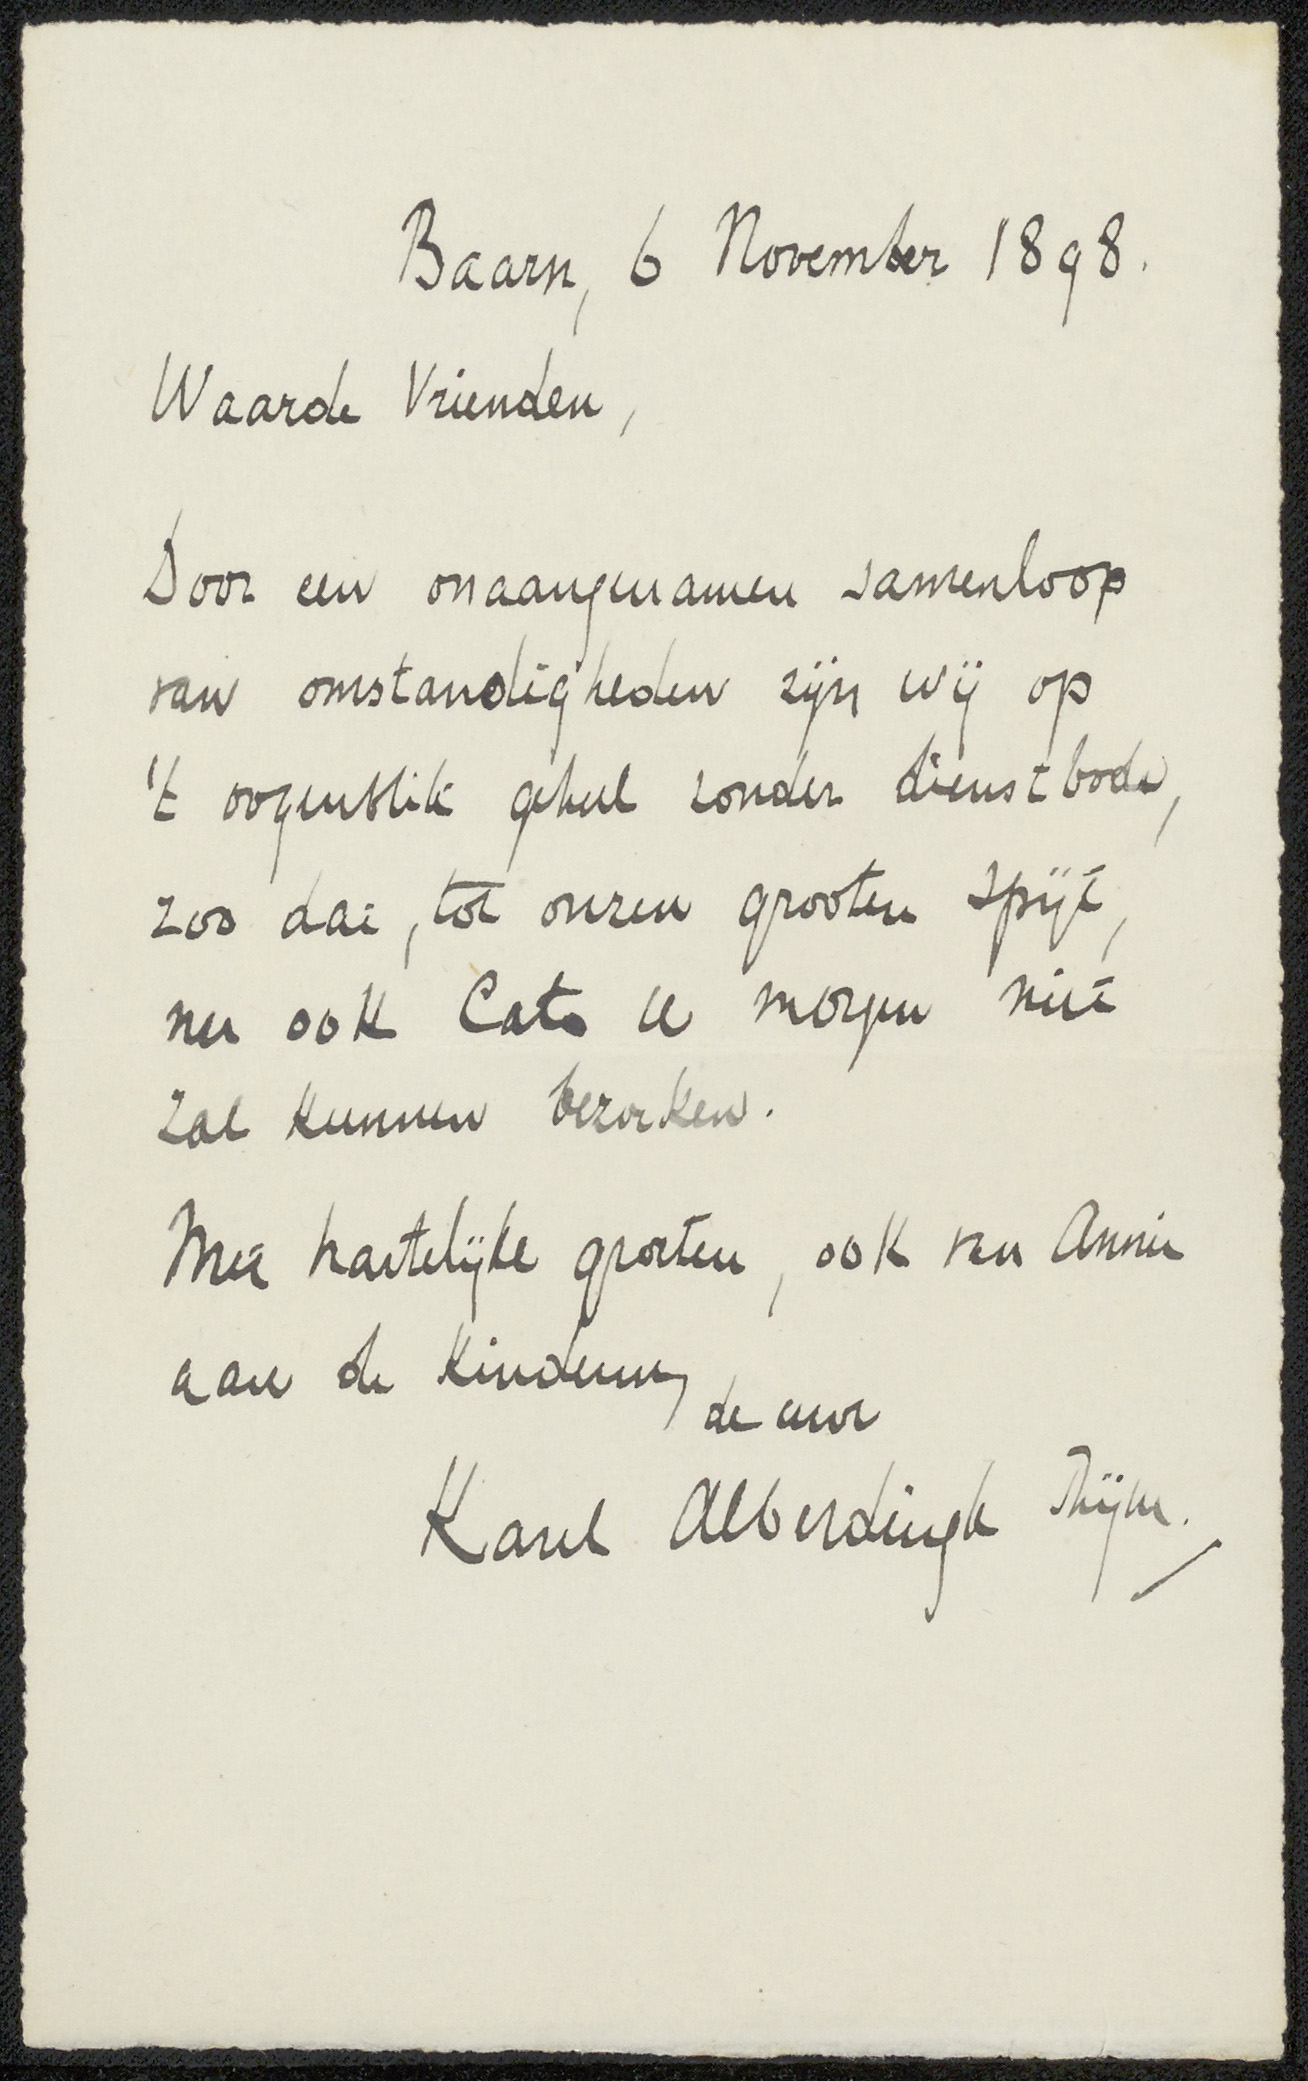 Baarn, 6 November 1898.
Waarde Vrienden,
Door een onaangenamen samenloop
van omstandigheden zijn wij op
't oogenblik geheel zonder dienstbode,
zoo dat, tot onzen grooten spijt,
nu ook Cato U morgen niet
zal kunnen bezoeken.
Met hartelijke groeten, ook van Annie
aan de kinderen,
de uwe
Karel Alberdingk Thijm.